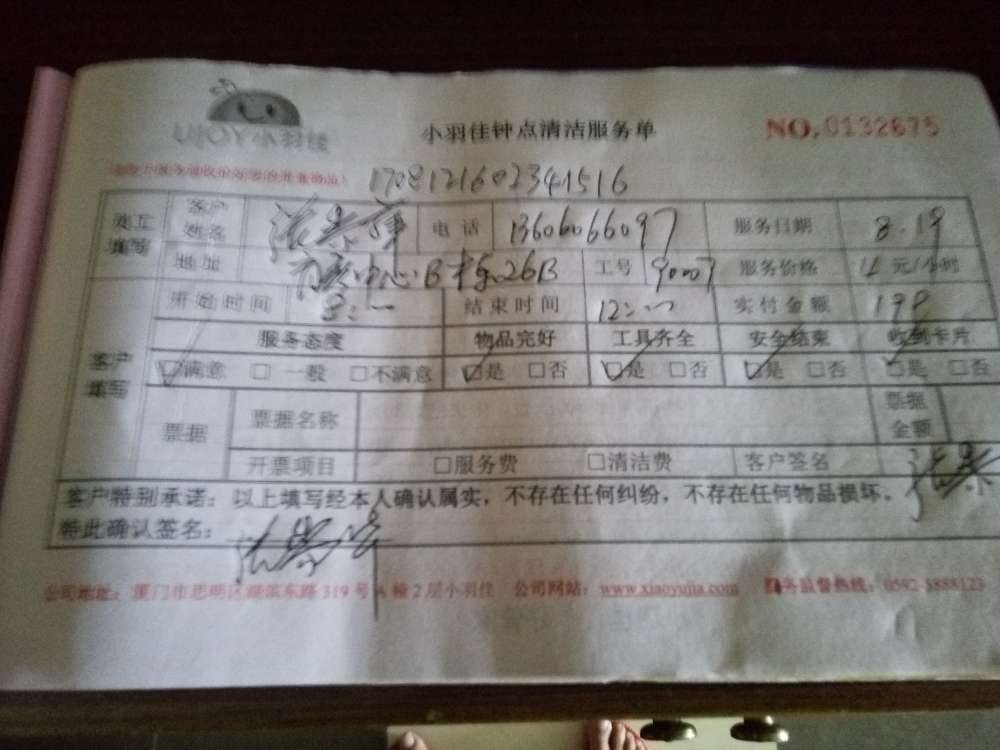 UJOY小羽佳
小羽佳钟点清洁服务单
NO.0132675
1708121602341516
员工填写 客户姓名 电话 13606066097 服务日期 8.19
地址 中心B栋26B 工号 90007 服务价格 元/小时
开始时间 8: 结束时间 12: 实付金额
客户填写 服务态度 物品完好 工具齐全 安全结束 收到卡片
☑满意 □一般 □不满意 ☑是 □否 ☑是 □否 ☑是 □否 ☑是 □否
票据 票据名称 票据金额
开票项目 □服务费 □清洁费 客户签名
客户特别承诺：以上填写经本人确认属实，不存在任何纠纷，不存在任何物品损坏。
特此确认签名：
公司地址：厦门市思明区湖滨东路319号A幢2层小羽佳 公司网站：www.xiaoyujia.com 服务监督热线：0592 5888123